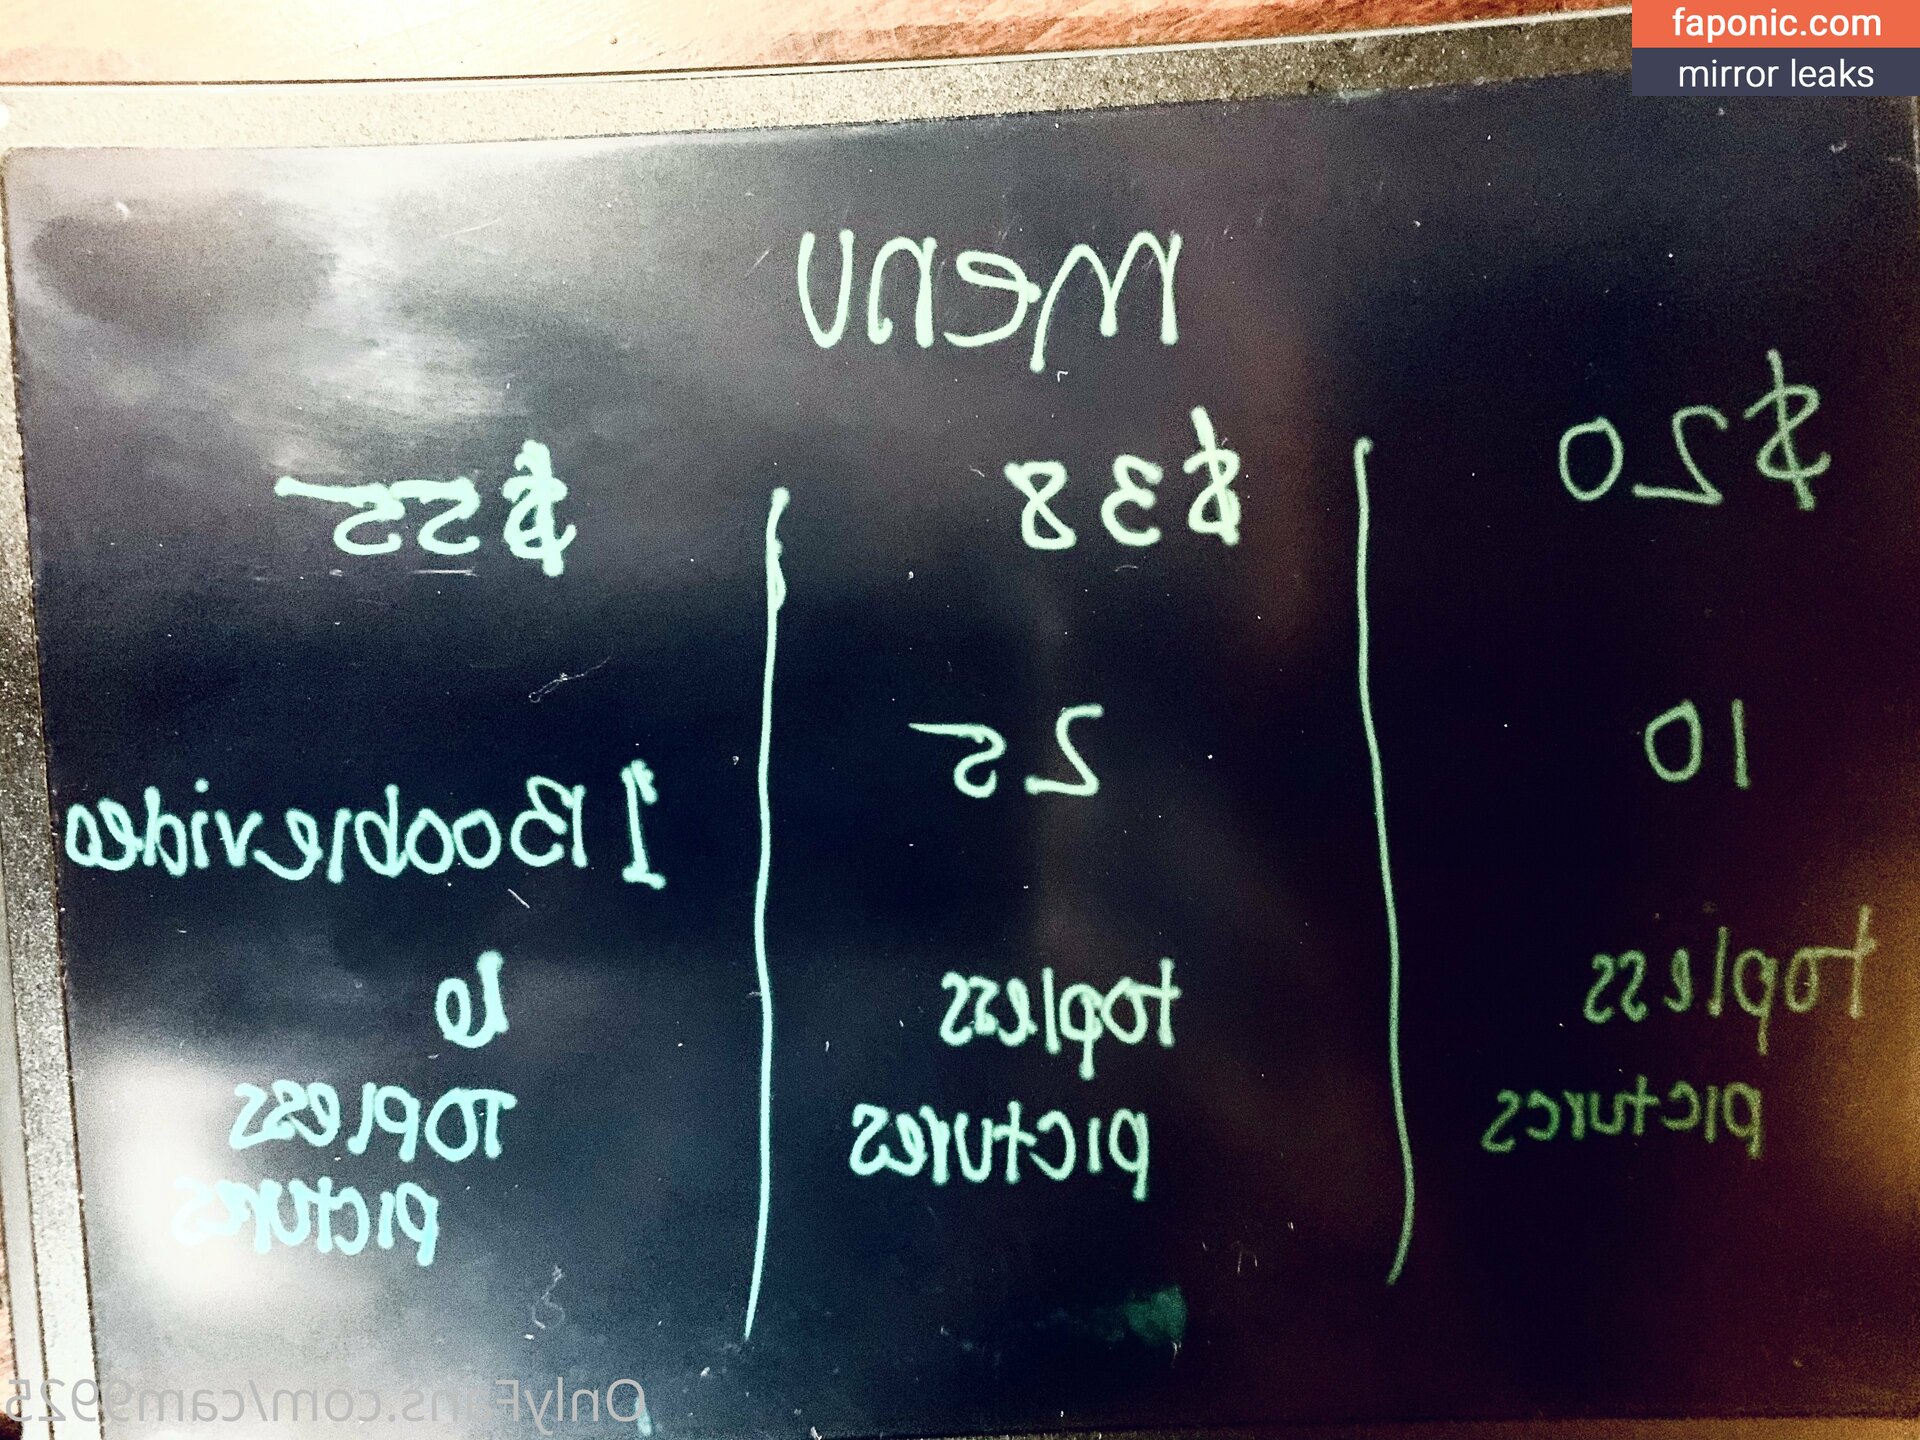 faponic.com
mirror leaks
Menu
$20
10
topless
pictures
$38
25
topless
pictures
$55
1 Boobie video
10
Topless
pictures
OnlyFans.com/cam9925